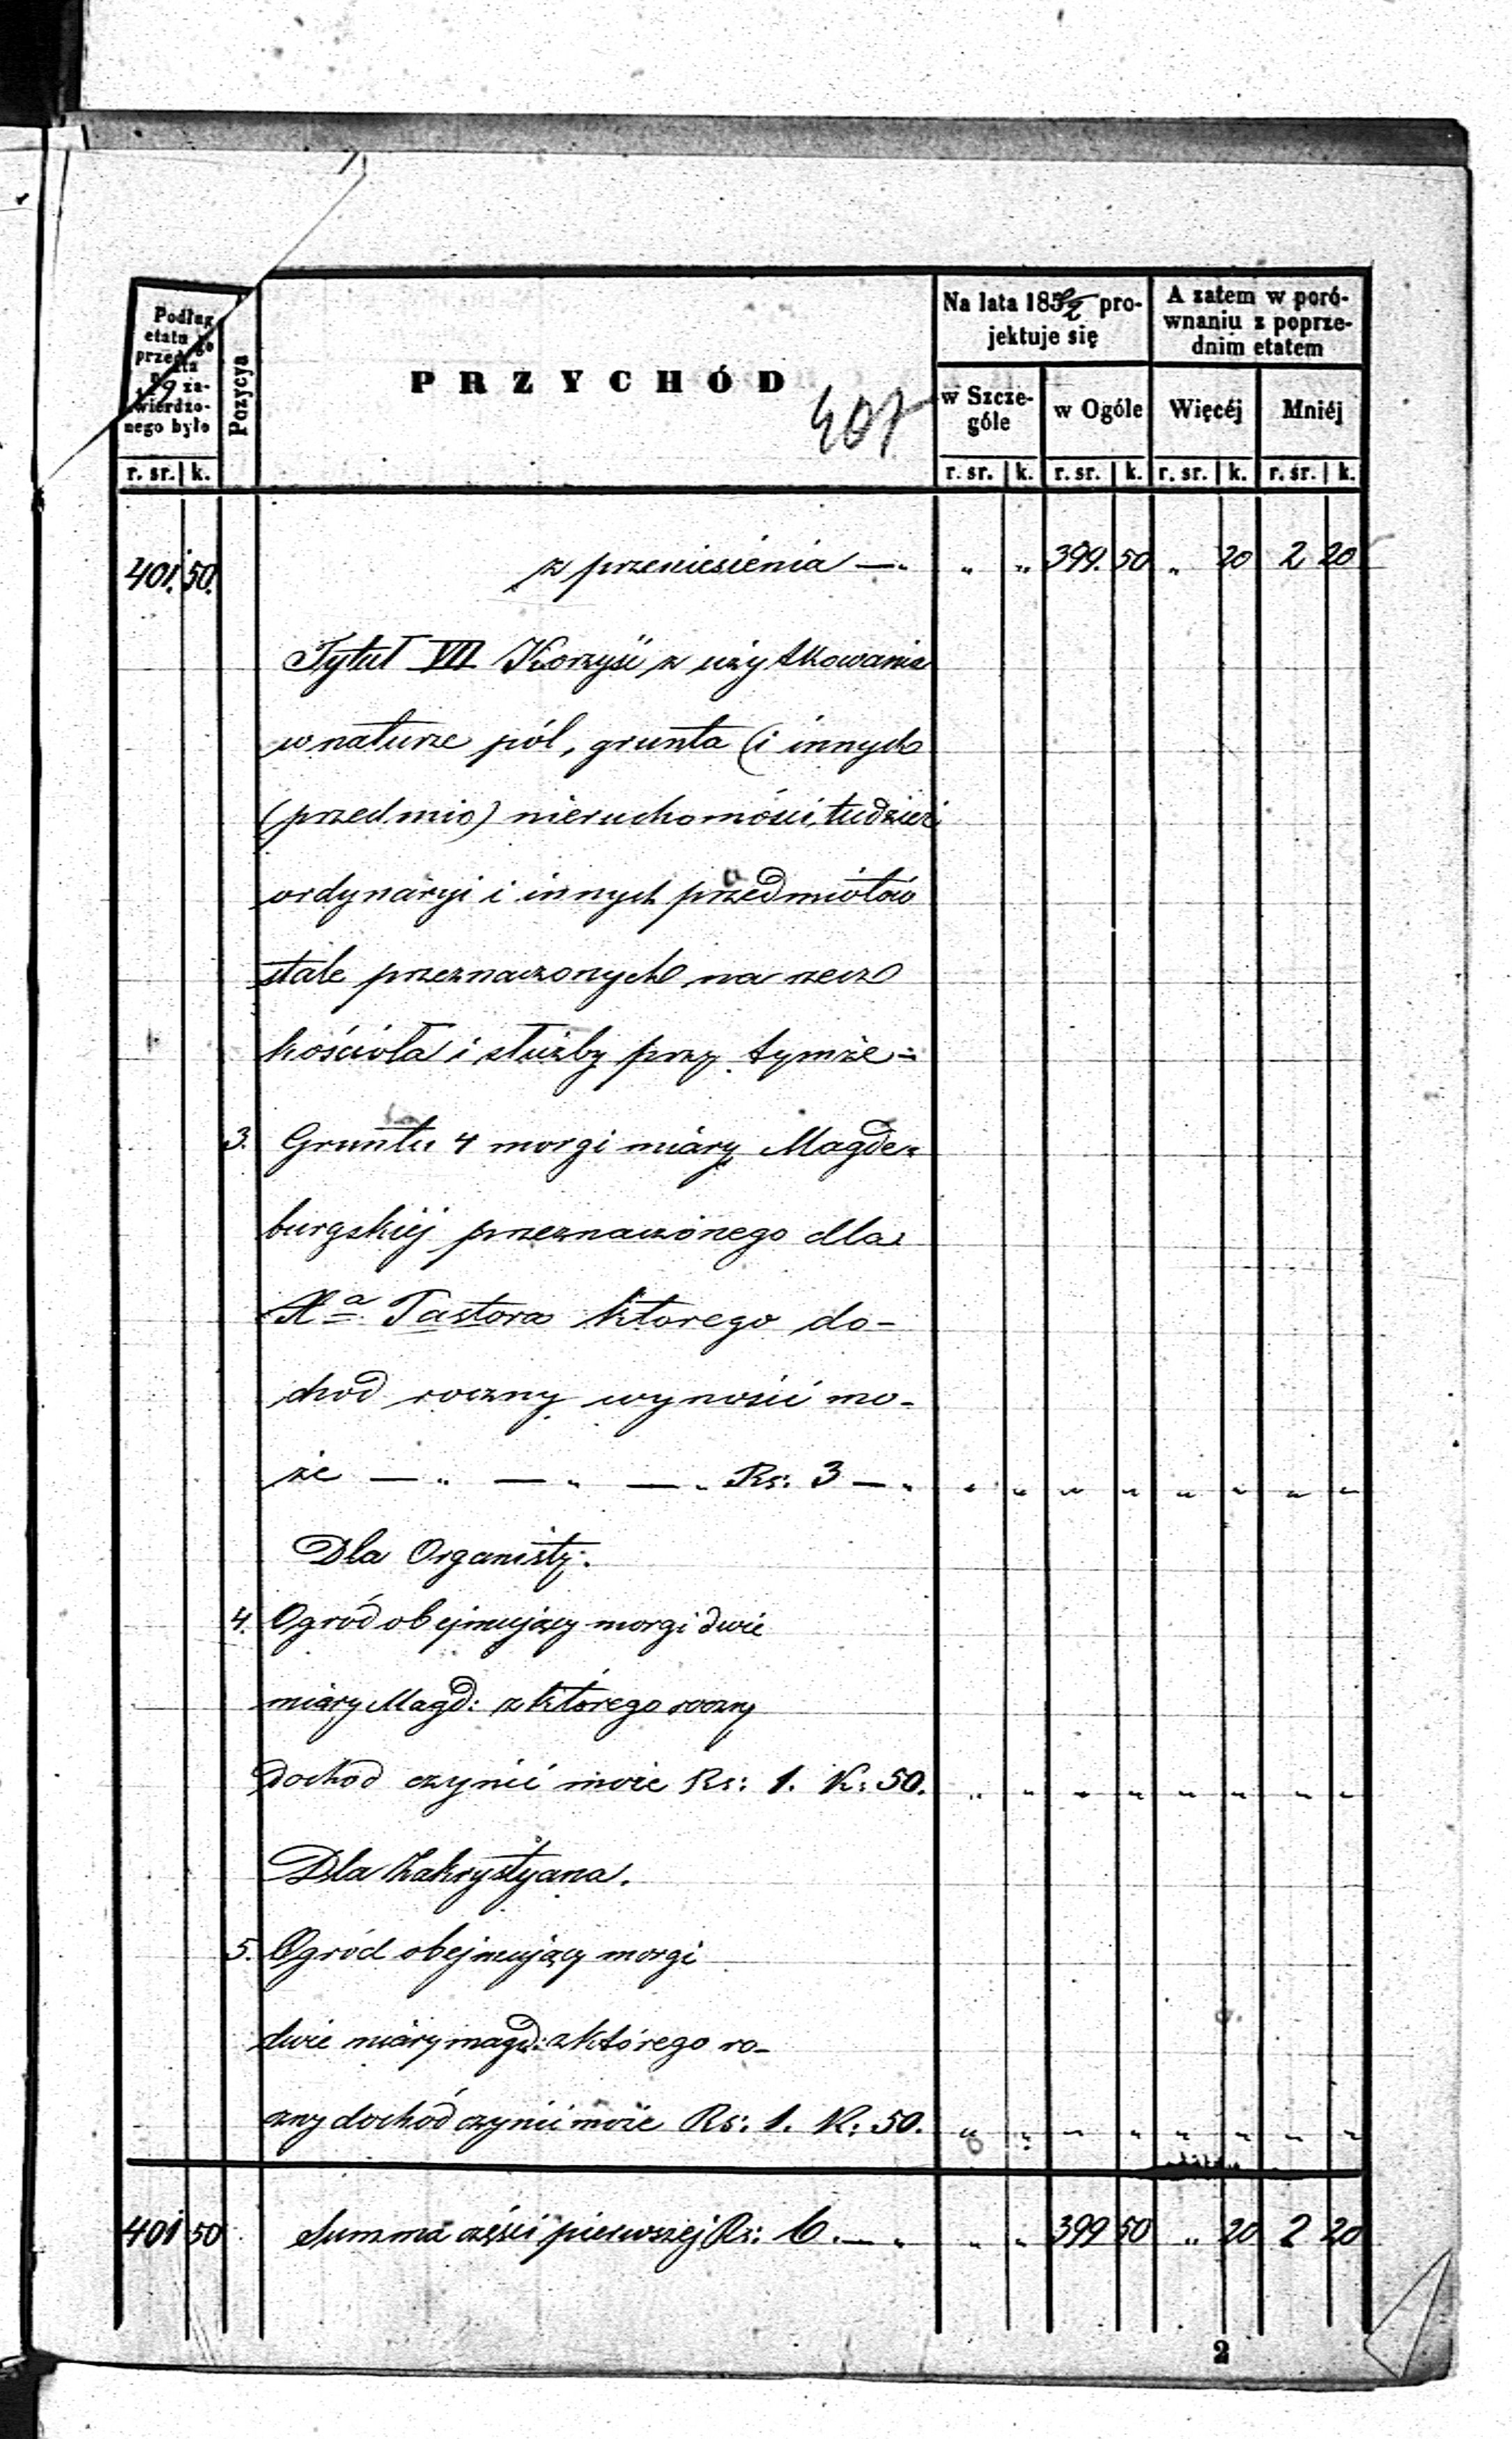 Podług
etatu
przed
za-
twierdzo-
nego było
r. sr. k.
Pozycya
PRZYCHÓD
407
Na lata 185 pro-
jektuje się
w Szcze-
góle
r. sr. k.
w Ogóle
r. sr. k.
A zatem w poró-
wnaniu z poprze-
dnim etatem
Więcéj
r. sr. k.
Mniéj
r. śr. k.
401. 50. z przeniesienia — „ „ „ 399. 50 „ 20 2 20
Tytuł VII Korzyść z użytkowania
w naturze pól, grunta (i innych
(przedmio) nieruchomości, tudzież
ordynaryi i innych przedmiotów
stale przeznaczonych na rzecz
kościoła i służby przy tymże
3. Gruntu 4 morgi miary Magde-
burgskiéj przeznaczonego dla
Xa Pastora ktorego do-
chod roczny wynosić mo-
że — „ — „ — „ Rs: 3 — „ „ „ „ „ „ „ „ „
Dla Organisty.
4. Ogród obejmujący morgi dwie
miary Magd: z którego roczny
dochod czynić może Rs: 1. K: 50. „ „ „ „ „ „ „ „
Dla Zakrystyana.
5. Ogród obejmujący morgi
dwie miary magd: z którego ro-
czny dochód czynić może Rs: 1. K: 50. „ „ „ „ „ „ „ „
401 50 Summa części pierwszej Rs: 6. — „ „ „ 399 50 „ 20 2 20
2